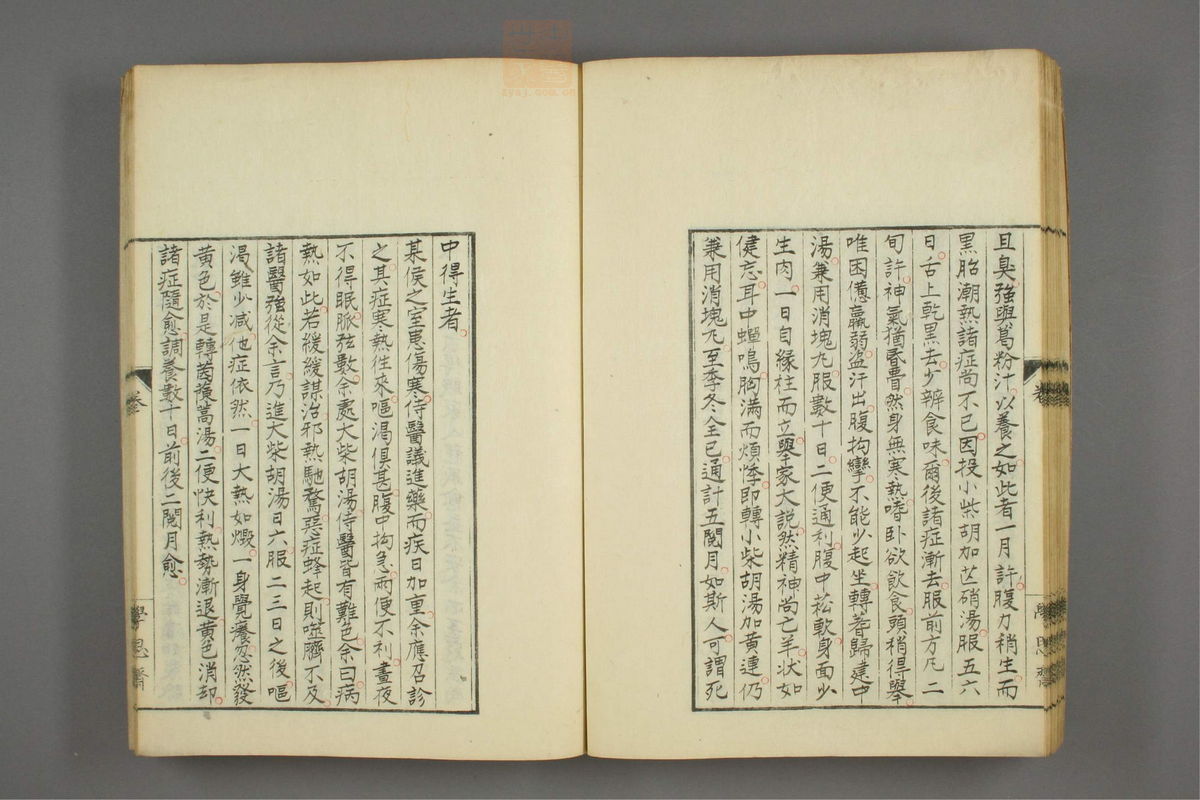 且臭強與葛粉汁以養之如此者一月許腹力稍生而
黒胎潮熱諸症尚不已因投小柴胡加芒硝湯服五六
日舌上乾黒去少辨食味爾後諸症漸去服前方凡二
旬許神氣猶昏曹然身無寒熱嗜卧欲飲食頭稍得舉
唯困憊羸弱盗汗出腹拘攣不能少起坐轉蓍歸建中
湯兼用消塊丸服數十日二便通利腹中菘軟身面少
生肉一日自緣柱而立舉家大説然精神尚亡羊状如
健忘耳中蟬鳴胸満而煩悸即轉小柴胡湯加黄連仍
兼用消塊丸至季冬全已通計五閲月如斯人可謂死
中得生者
某侯之室患傷寒侍醫議進藥而疾日加重余應召診
之其症寒熱往來嘔渇倶甚腹中拘急兩便不利晝夜
不得眠脈弦數余處大柴胡湯侍醫皆有難色余曰病
熱如此若緩緩謀治邪熱馳騖惡症蜂起則噬臍不及
諸醫強從余言乃進大柴胡湯日六服二三日之後嘔
渇雖少减他症依然一日大熱如燬一身覺癢忽然發
黄色於是轉茵蔯蒿湯二便快利熱勢漸退黄色消却
諸症隨愈調養數十日前後二閲月愈
卷
學思齋
zysj.com.cn